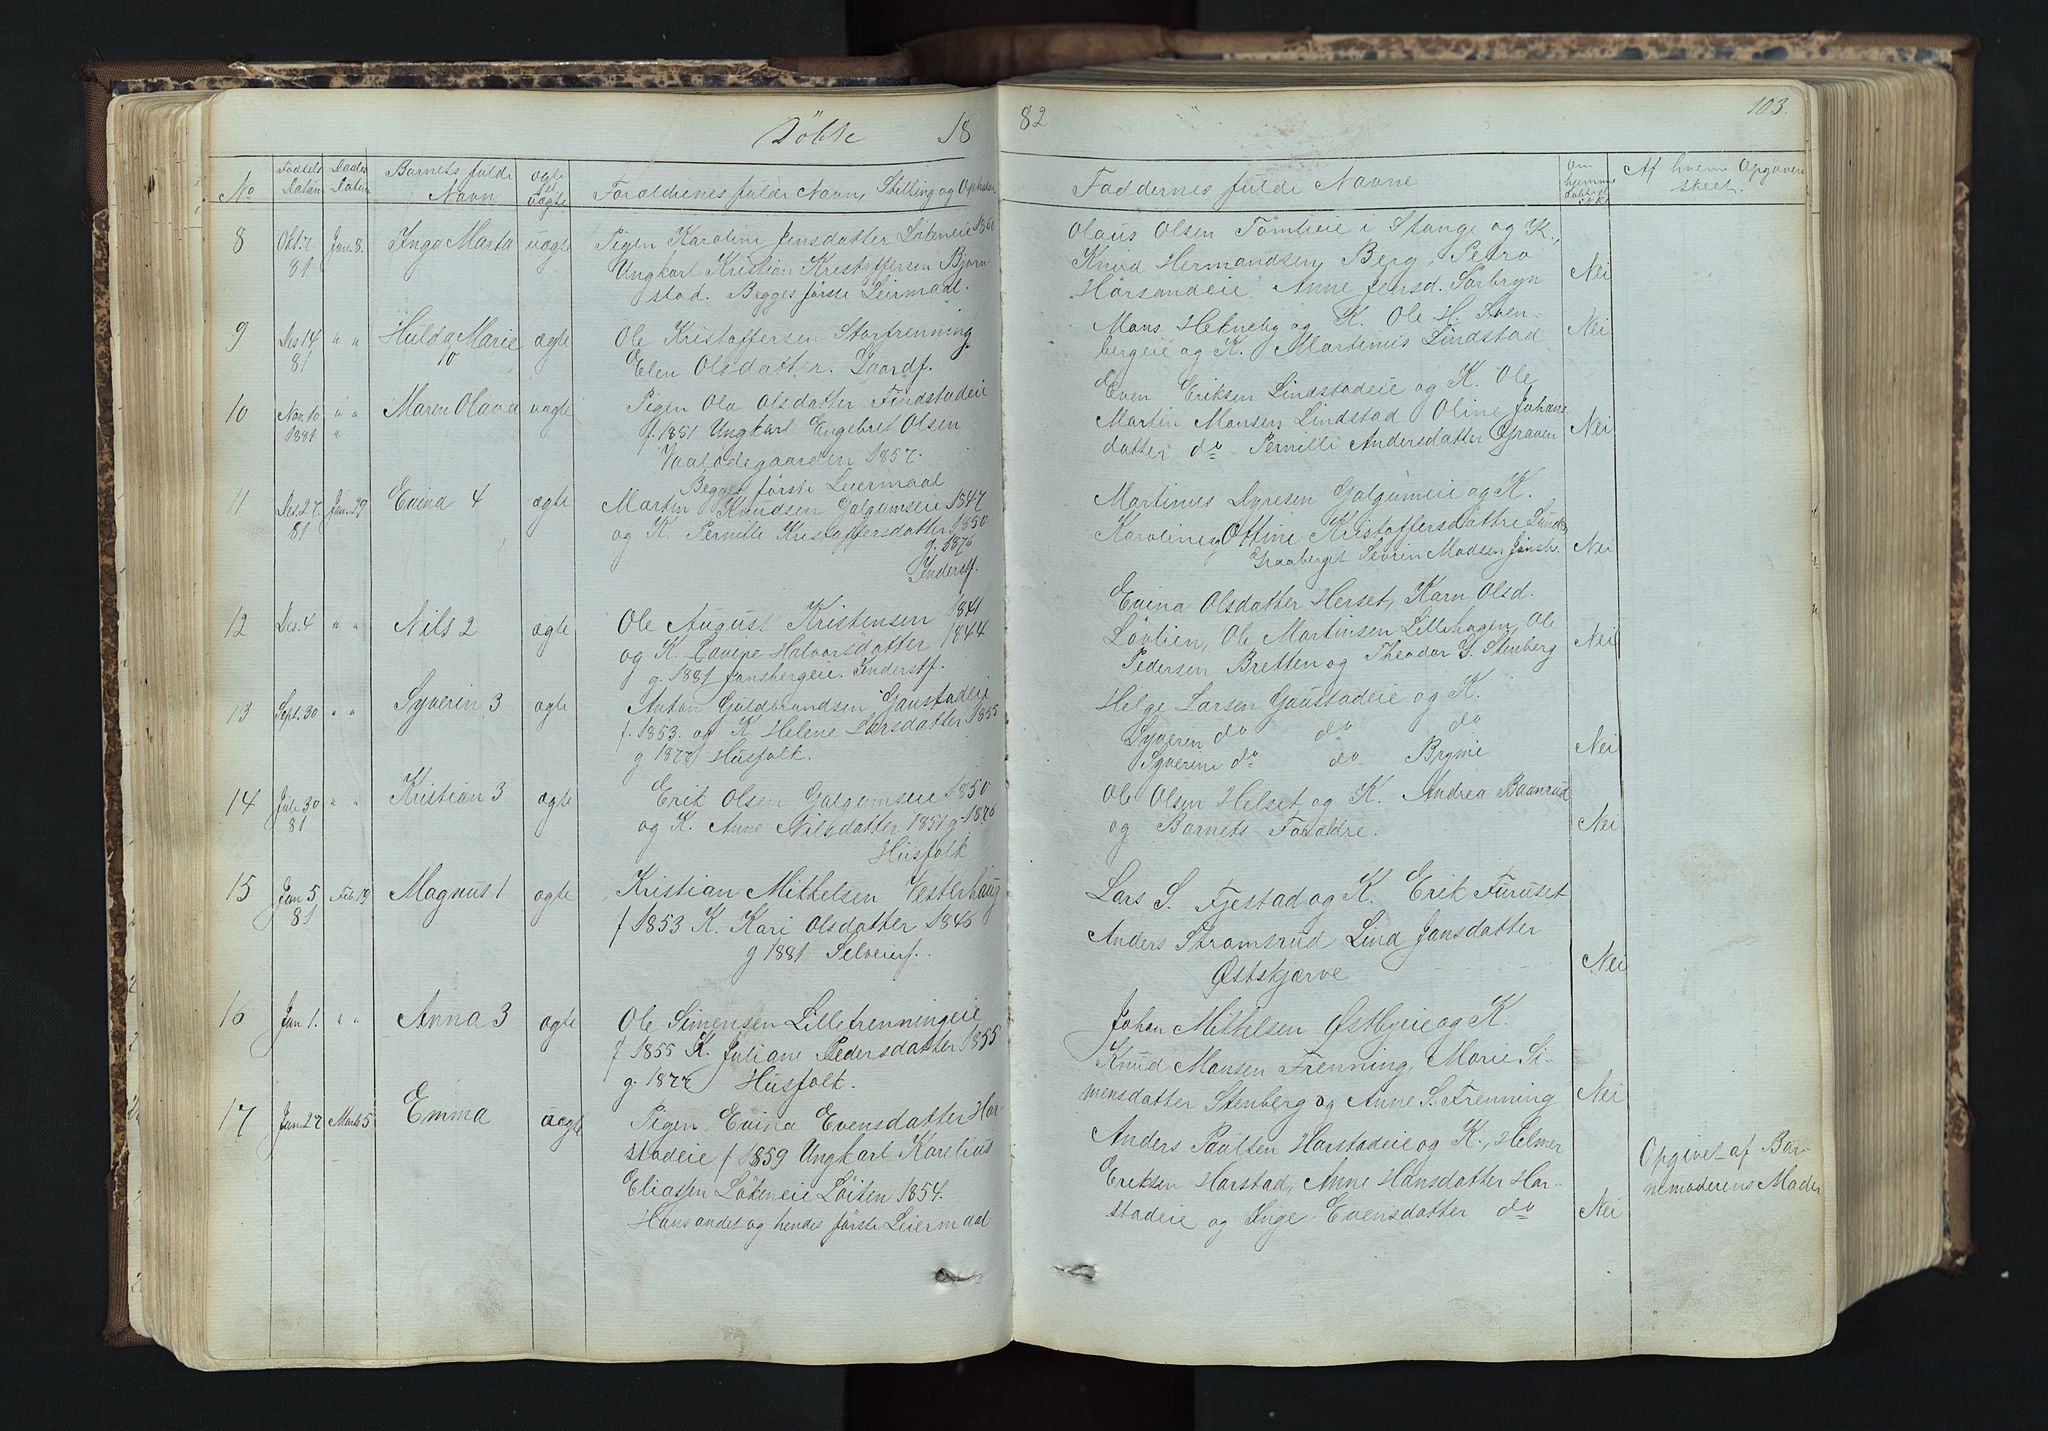 Döbte 18 82 103.
No Fødsels Datum Daabs Datum Barnets fulde Navn ægte el. uægte Forældrenes fulde Navn, Stilling og
Faddernes fulde Navne Om hjemme døbt Af hvem Opgaven skeet.
8 Okt. 7 81 Jan. 8. Inga Marta uægte Pigen Karoline Jensdatter Løkeneie 1860
Ungkarl Kristian Kristoffersen Bjørn-
stad. Begges første Leirmaal.
Olaus Olsen Tømteie i Stange og K.,
Knud Hermandsen Berg, Petra
Horsandeie Anne Jensd. Sørbryn Nei
9 Des. 14 81 " " Hulda Marie 10 ægte Ole Kristoffersen Storfrenning
Elen Olsdatter. Gaardf.
Mons Hekneby og K. Ole H. Sven-
bergeie og K. Martinus Lindstad Nei
10 Nov. 10 1881 " " " Maren Olava uægte Pigen Ola Olsdatter Findstadeie
f. 1851 Ungkarl Engebret Olsen
Vaalodegaarden 1857.
Begges første Leiermaal
Even Eriksen Lindstadeie og K. Ole
Martin Monsen Lindstad Oline Johans-
datter do Pernille Andersdatter Graven Nei
11 Des. 27 81 Jan. 29 Evina 4 ægte Martin Knudsen Galgumseie 1847
og K. Pernille Kristoffersdatter 1850
g. 1876
Inderstf.
Martinus Dyresen Galgumeie og K.
Karoline og Ottine Kristoffersdattre
Graaberget Søvren Madsen Nei
12 Des. 4 " " Nils 2 ægte Ole August Kristensen 1841
og K. Halvorsdatter 1844
g. 1881 Jønsbergeie. Inderstf.
Evina Olsdatter Herset, Karn Olsd.
Løvlien, Ole Martinsen Lillehagen, Ole
Pedersen Bretten og Theodor G. Stenberg Nei
13 Sept. 30 " " Syverin 3 ægte Anton Guldbrandsen Gaustadeie
f. 1853. og K Helene Larsdatter 1855
g 1877 Husfolk.
Helge Larsen Gaustadeie og K.
Syveren do do do
Syverine do do Brynie Nei
14 Juli 30 81 " " Kristian 3 ægte Erik Olsen Galgumseie 1850
og K. Anne Nilsdatter 1851 g. 1876
Husfolk
Ole Olsen Helset og K. Andrea Baanrud
og Barnets Forældre. Nei
15 Jan 5 81 Feb. 19 Magnus 1 ægte Kristian Mikkelsen Vesterhaug
f 1853 K. Kari Olsdatter 1846
g 1881 Selveierf.
Lars S. Fjestad og K. Erik Furuset
Anders Stramsrud Lina Jansdatter
Østskjærve Nei
16 Jan 1. " " Anna 3 ægte Ole Simensen Lillefrenningeie
f 1855 K. Juliane Pedersdatter 1855
g. 1877 Husfolk.
Johan Mikkelsen Østbyeie og K.
Knud Monsen Frenning, Marie Si-
mensdatter Stenberg og Anne S. Frenning Nei
17 Jan 27 Marts 5 Emma uægte Pigen Evina Evensdatter Hor-
stadeie f 1859 Ungkarl Karelius
Eliassen Løkeneie Løiten 1854.
Hans andet og hendes første Leiermaal
Anders Paulsen Horstadeie og K., Helmer
Eriksen Horstad, Anne Hansdatter Hor-
stadeie og Inge Evensdatter do Nei
Opgivet af Bar-
nemoderens Moder